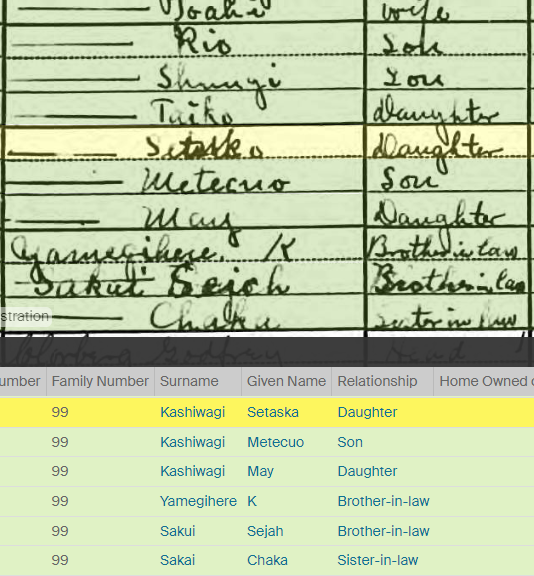 wife
Rio Son
Son
Taiko Daughter
Daughter
Metecuo Son
May Daughter
K Brother in law
Brother in law
stration
Chaka Sister in law
umber Family Number Surname Given Name Relationship Home Owned o
99 Kashiwagi Setaska Daughter
99 Kashiwagi Metecuo Son
99 Kashiwagi May Daughter
99 Yamegihere K Brother-in-law
99 Sakui Sejah Brother-in-law
99 Sakai Chaka Sister-in-law